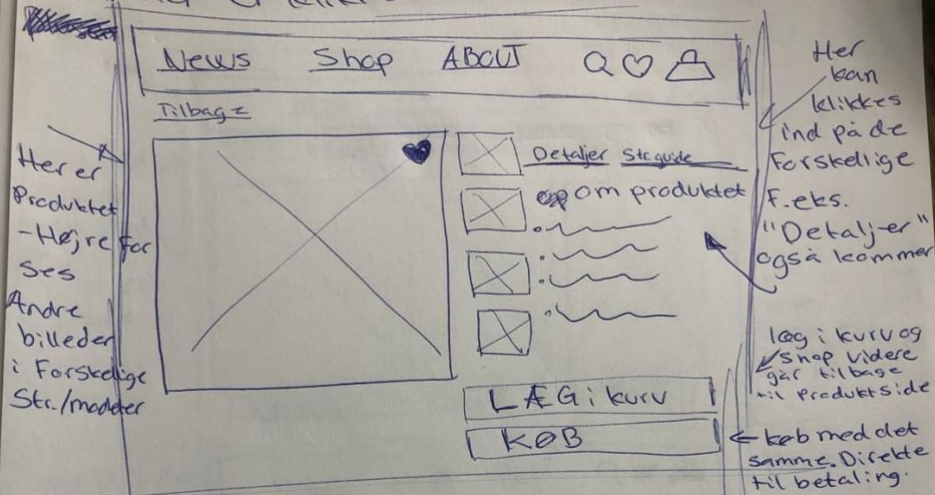 News Shop ABOUT
Tilbage
Detaljer Str.guide
om produktet
LÆG i kurv
KØB
Her er
Produktet
-Højre for
ses
Andre
billeder
i Forskellige
Str./modeler
Her
kan
klikkes
ind på de
Forskellige
F.eks.
"Detaljer"
også kommer
læg i kurv og
shop videre
går tilbage
til Produktside
køb med det
samme. Direkte
til betaling.